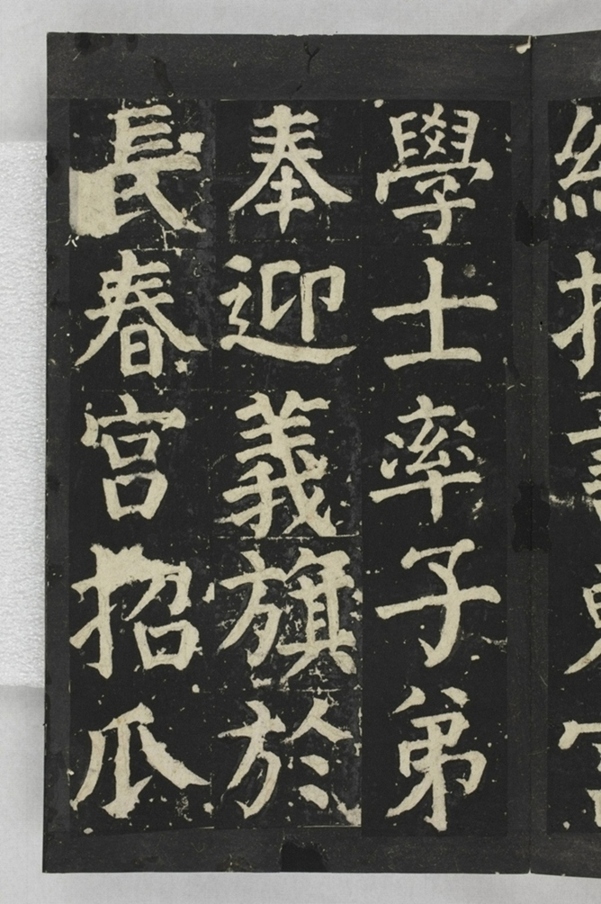 學士率子弟
奉迎義旗於
長春宮招瓜